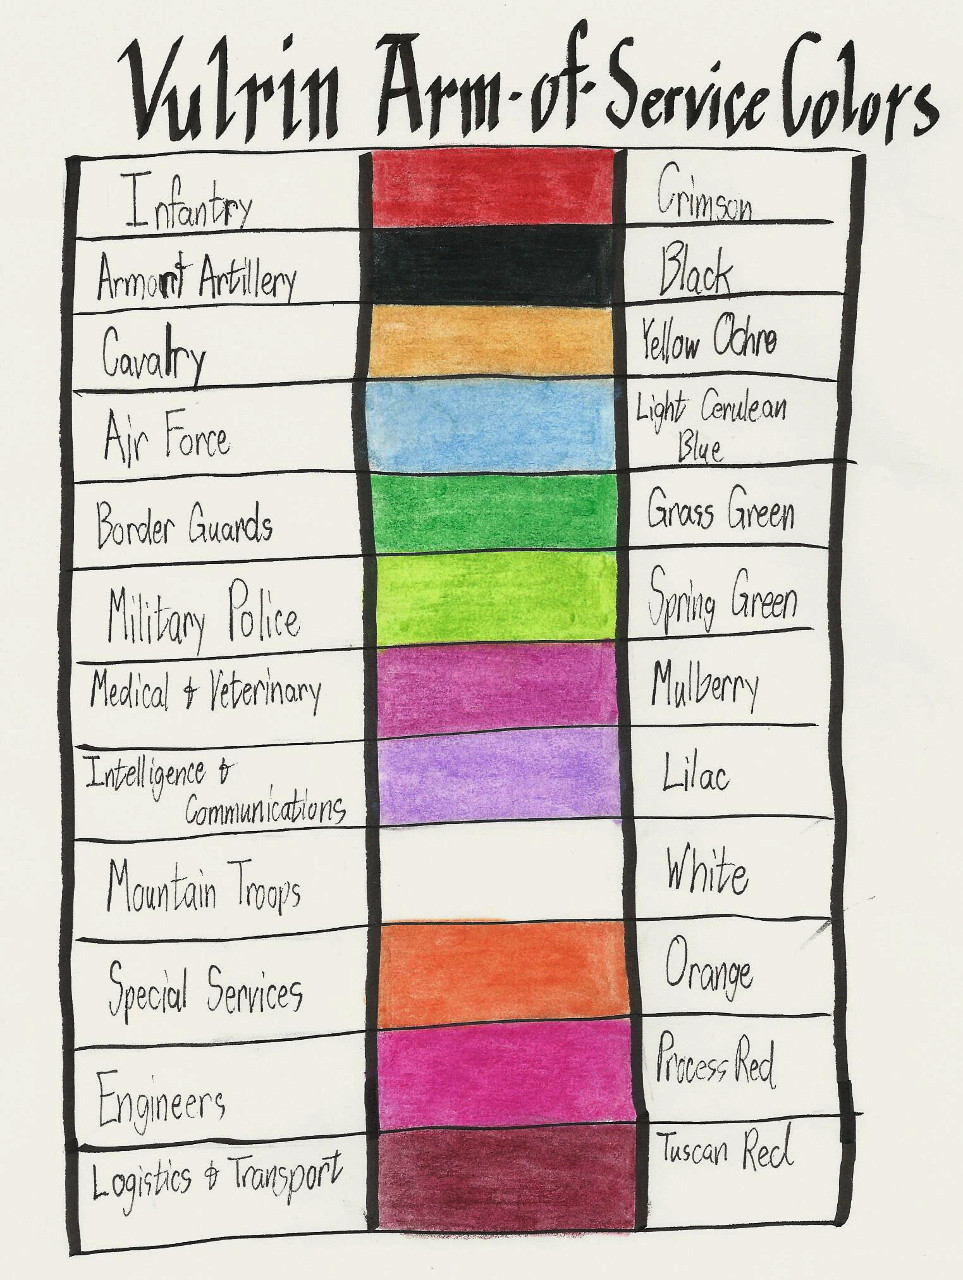 Vulrin Arm-of-Service Colors
Infantry Crimson
Artillery Black
Cavalry Yellow Ochre
Air Force Light Cerulean
Blue
Border Guards Grass Green
Military Police Spring Green
Medical & Veterinary Mulberry
Intelligence &
Communications Lilac
Mountain Troops White
Special Services Orange
Engineers Process Red
Logistics & Transport Tuscan Red